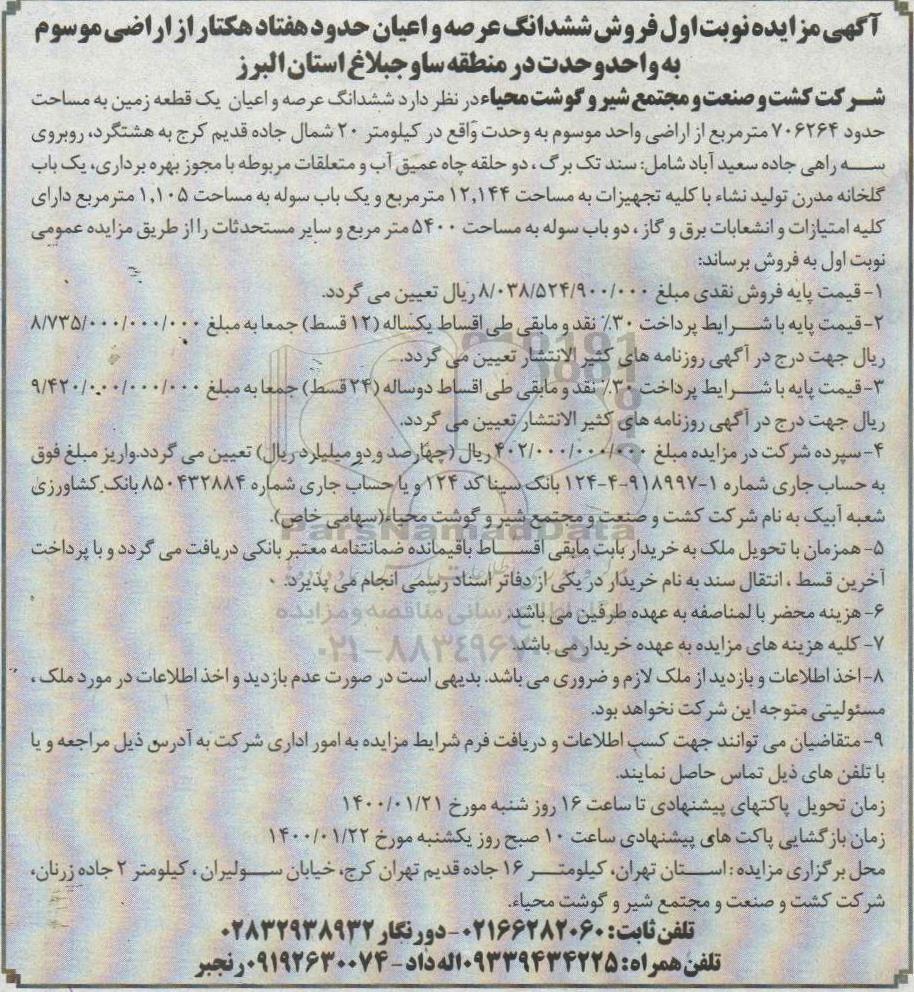 آگهی مزایده نوبت اول فروش ششدانگ عرصه و اعیان حدود هفتاد هکتار از اراضی موسوم
به واحد وحدت در منطقه ساوجبلاغ استان البرز
شرکت کشت و صنعت و مجتمع شیر و گوشت محیاء در نظر دارد ششدانگ عرصه و اعیان یک قطعه زمین به مساحت
حدود ۷۰۶۲۶۴ مترمربع از اراضی واحد موسوم به وحدت واقع در کیلومتر ۲۰ شمال جاده قدیم کرج به هشتگرد، روبروی
سه راهی جاده سعید آباد شامل: سند تک برگ ، دو حلقه چاه عمیق آب و متعلقات مربوطه با مجوز بهره برداری، یک باب
گلخانه مدرن تولید نشاء با کلیه تجهیزات به مساحت ۱۲,۱۴۴ مترمربع و یک باب سوله به مساحت ۱,۱۰۵ مترمربع دارای
کلیه امتیازات و انشعابات برق و گاز ، دو باب سوله به مساحت ۵۴۰۰ متر مربع و سایر مستحدثات را از طریق مزایده عمومی
نوبت اول به فروش برساند:
۱- قیمت پایه فروش نقدی مبلغ ۸/۰۳۸/۵۲۴/۹۰۰/۰۰۰ ریال تعیین می گردد.
۲- قیمت پایه با شرایط پرداخت ۳۰٪ نقد و مابقی طی اقساط یکساله (۱۲ قسط) جمعا به مبلغ ۸/۷۳۵/۰۰۰/۰۰۰/۰۰۰
ریال جهت درج در آگهی روزنامه های کثیر الانتشار تعیین می گردد.
۳- قیمت پایه با شرایط پرداخت ۳۰٪ نقد و مابقی طی اقساط دوساله (۲۴ قسط) جمعا به مبلغ ۹/۴۲۰/۰۰۰/۰۰۰/۰۰۰
ریال جهت درج در آگهی روزنامه های کثیر الانتشار تعیین می گردد.
۴- سپرده شرکت در مزایده مبلغ ۴۰۲/۰۰۰/۰۰۰/۰۰۰ ریال (چهارصد و دو میلیارد ریال) تعیین می گردد.واریز مبلغ فوق
به حساب جاری شماره ۱-۹۱۸۹۹۷-۴-۱۲۴ بانک سینا کد ۱۲۴ و یا حساب جاری شماره ۸۵۰۴۳۲۸۸۴ بانک کشاورزی
شعبه آبیک به نام شرکت کشت و صنعت و مجتمع شیر و گوشت محیاء(سهامی خاص).
ParsNamadData
۵- همزمان با تحویل ملک به خریدار بابت مابقی اقساط باقیمانده ضمانتنامه معتبر بانکی دریافت می گردد و با پرداخت
آخرین قسط ، انتقال سند به نام خریدار در یکی از دفاتر اسناد رسمی انجام می پذیرد.
۶- هزینه محضر با لمناصفه به عهده طرفین می باشد.
۷- کلیه هزینه های مزایده به عهده خریدار می باشد.
۸- اخذ اطلاعات و بازدید از ملک لازم و ضروری می باشد. بدیهی است در صورت عدم بازدید و اخذ اطلاعات در مورد ملک ،
مسئولیتی متوجه این شرکت نخواهد بود.
۹- متقاضیان می توانند جهت کسب اطلاعات و دریافت فرم شرایط مزایده به امور اداری شرکت به آدرس ذیل مراجعه و یا
با تلفن های ذیل تماس حاصل نمایند.
زمان تحویل پاکتهای پیشنهادی تا ساعت ۱۶ روز شنبه مورخ ۱۴۰۰/۰۱/۲۱
زمان بازگشایی پاکت های پیشنهادی ساعت ۱۰ صبح روز یکشنبه مورخ ۱۴۰۰/۰۱/۲۲
محل برگزاری مزایده : استان تهران، کیلومتر ۱۶ جاده قدیم تهران کرج، خیابان سولیران ، کیلومتر ۲ جاده زرنان،
شرکت کشت و صنعت و مجتمع شیر و گوشت محیاء.
تلفن ثابت: ۰۲۱۶۶۲۸۲۰۶۰ - دور نگار ۰۲۸۳۲۹۳۸۹۳۲
تلفن همراه: ۰۹۳۳۹۴۳۴۲۲۵ اله داد - ۰۹۱۹۲۶۳۰۰۷۴ رنجبر